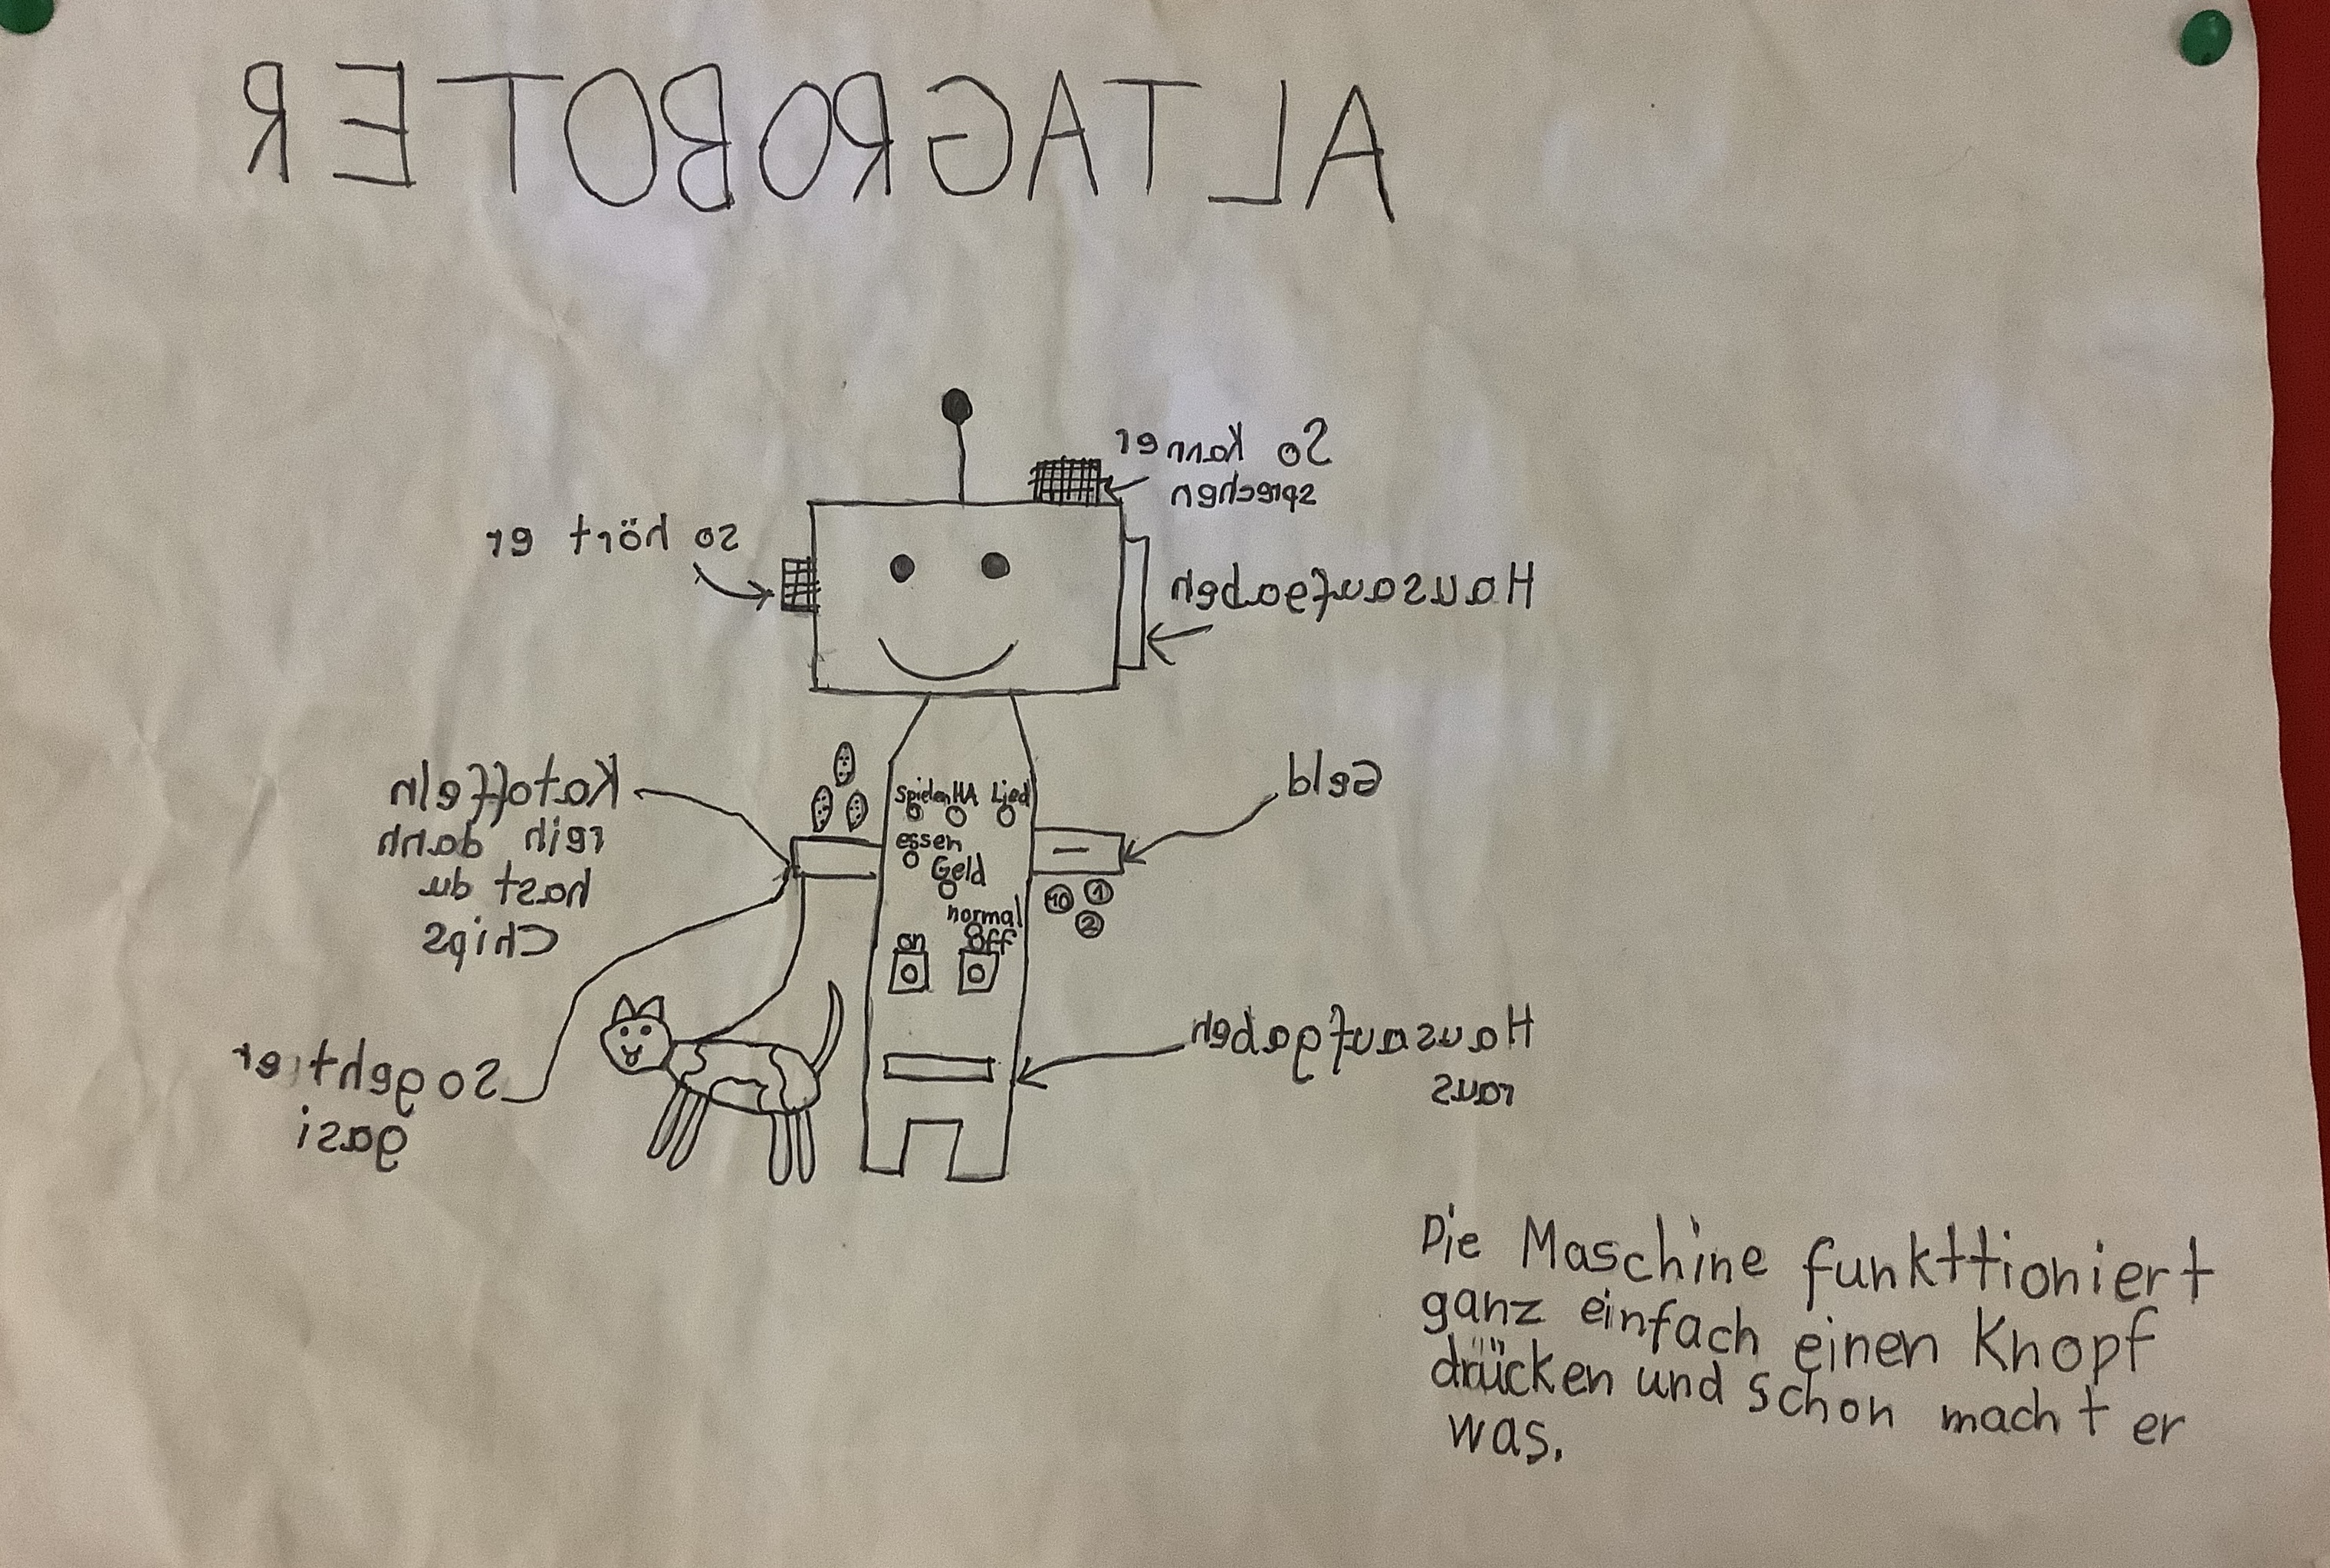 ALTAGROBOTER
So kann er
sprechen
so hört er
Hausaufgaben
Katoffeln
reih dann
hast du
Chips
Geld
Spielen HA Lied
essen
Geld
normal
on off
10 1
2
Hausaufgaben
raus
So geht er
gasi
Die Maschine funkttioniert
ganz einfach einen Knopf
drücken und schon macht er
was.